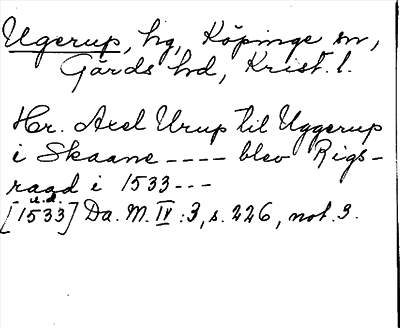 Ugerup, hg, Köpinge sn,
Gärds hd, Krist. l.
Hr. Axel Urup til Uggerup
i Skaane ---- blev Rigs-
raad i 1533---
u.d.
[1533] Da. M. IV :3, s. 226, not. 3.